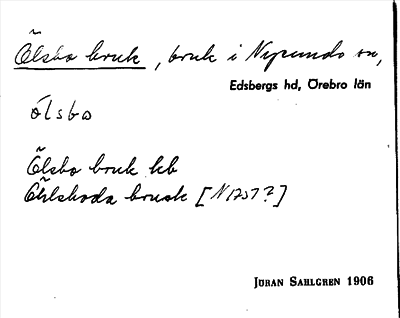 Ölsbo bruk, bruk i Nysunds sn,
Edsbergs hd, Örebro län
ólsbo
Ölsbo bruk kb
Öhlsboda bruk [N1757?]
JÖRAN SAHLGREN 1906